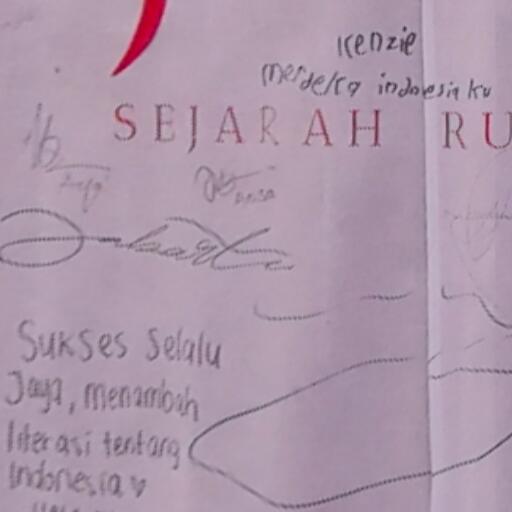 Kenzie
merdeka indonesia ku
SEJARAH RU
Sukses selalu
Jaya, menambah
literasi tentang
Indonesia